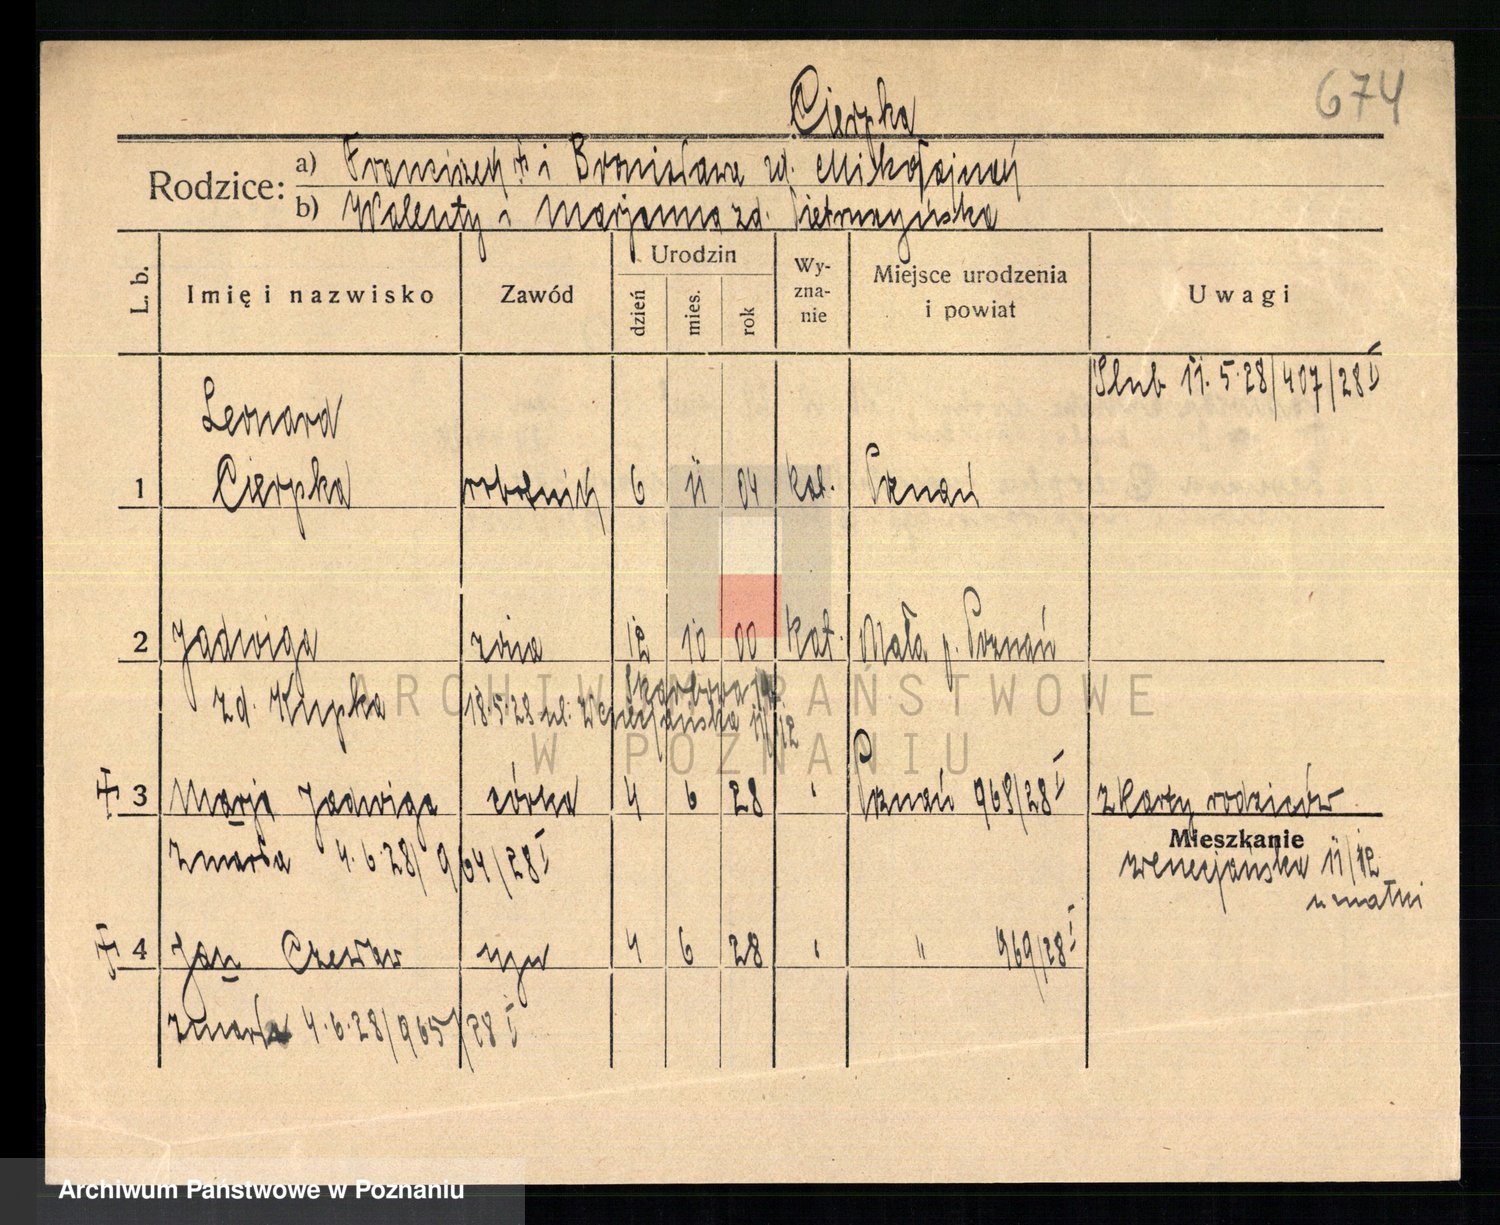 674
Cierpka
Rodzice:
a) Franciszek † i Bronisława zd. Mikołajczak
b) Walenty i Marjanna zd. Pietrzyńska
L. b.
Imię i nazwisko
Zawód
Urodzin
dzień
mies.
rok
Wy-
zna-
nie
Miejsce urodzenia
i powiat
Uwagi
Ślub 11.5.28/407/28 I
Leonard
1 Cierpka robotnik 6 11 04 kat. Poznań
2 Jadwiga żona 12 10 00 kat. Mała p. Poznań
zd. Kupka
18.5.28 ul. Wenecjańska 11/12
3 Marja Jadwiga córka 4 6 28 " Poznań 968/28 I z karty rodziców
zmarła 4.6.28/964/28 I
Mieszkanie
Wenecjańska 11/12
u matki
4 Jan Czesław syn 4 6 28 " " 969/28 I
zmarł 4.6.28/965/28 I
ARCHIWUM PAŃSTWOWE
W POZNANIU
Archiwum Państwowe w Poznaniu